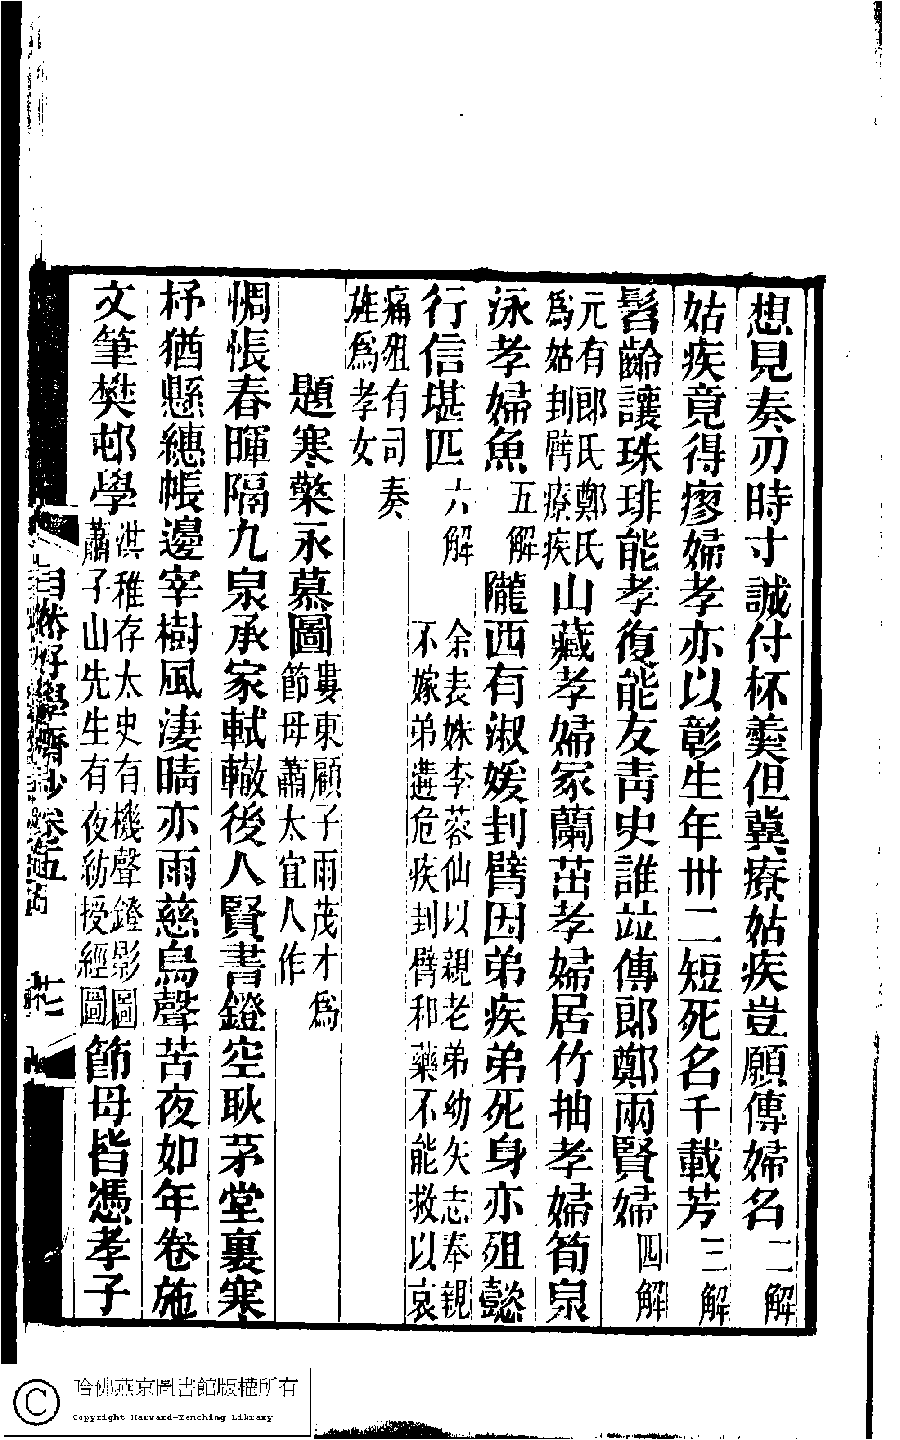 想見奏刃時寸誠付杯羹但冀療姑疾豈願傳婦名二解
姑疾竟得瘳婦孝亦以彰生年卅二短死名千載芳三解
髫齡讓珠琲能孝復能友靑史誰竝傳郎鄭兩賢婦四解
元有郎氏鄭氏
爲姑刲臂療疾
山藏孝婦冢蘭茁孝婦居竹抽孝婦筍泉
泳孝婦魚五解隴西有淑媛刲臂因弟疾弟死身亦殂懿
行信堪匹六解
余表姝李蓉仙以親老弟幼矢志奉親
不嫁弟遘危疾刲臂和藥不能救以哀
痛殂有司奏
旌爲孝女
題寒檠永慕圖
婁東顧子雨茂才爲
節母蕭太宜人作
惆悵春暉隔九泉承家軾轍後人賢書鐙空耿茅堂裏寒
杼猶懸繐帳邊宰樹風淒晴亦雨慈烏聲苦夜如年卷施
文筆樊邨學
洪稚存太史有機聲鐙影圖
蕭子山先生有夜紡授經圖
節母皆憑孝子
自然好學齋鈔卷五
哈佛燕京圖書館版權所有
Copyright Harvard-Yenching Library